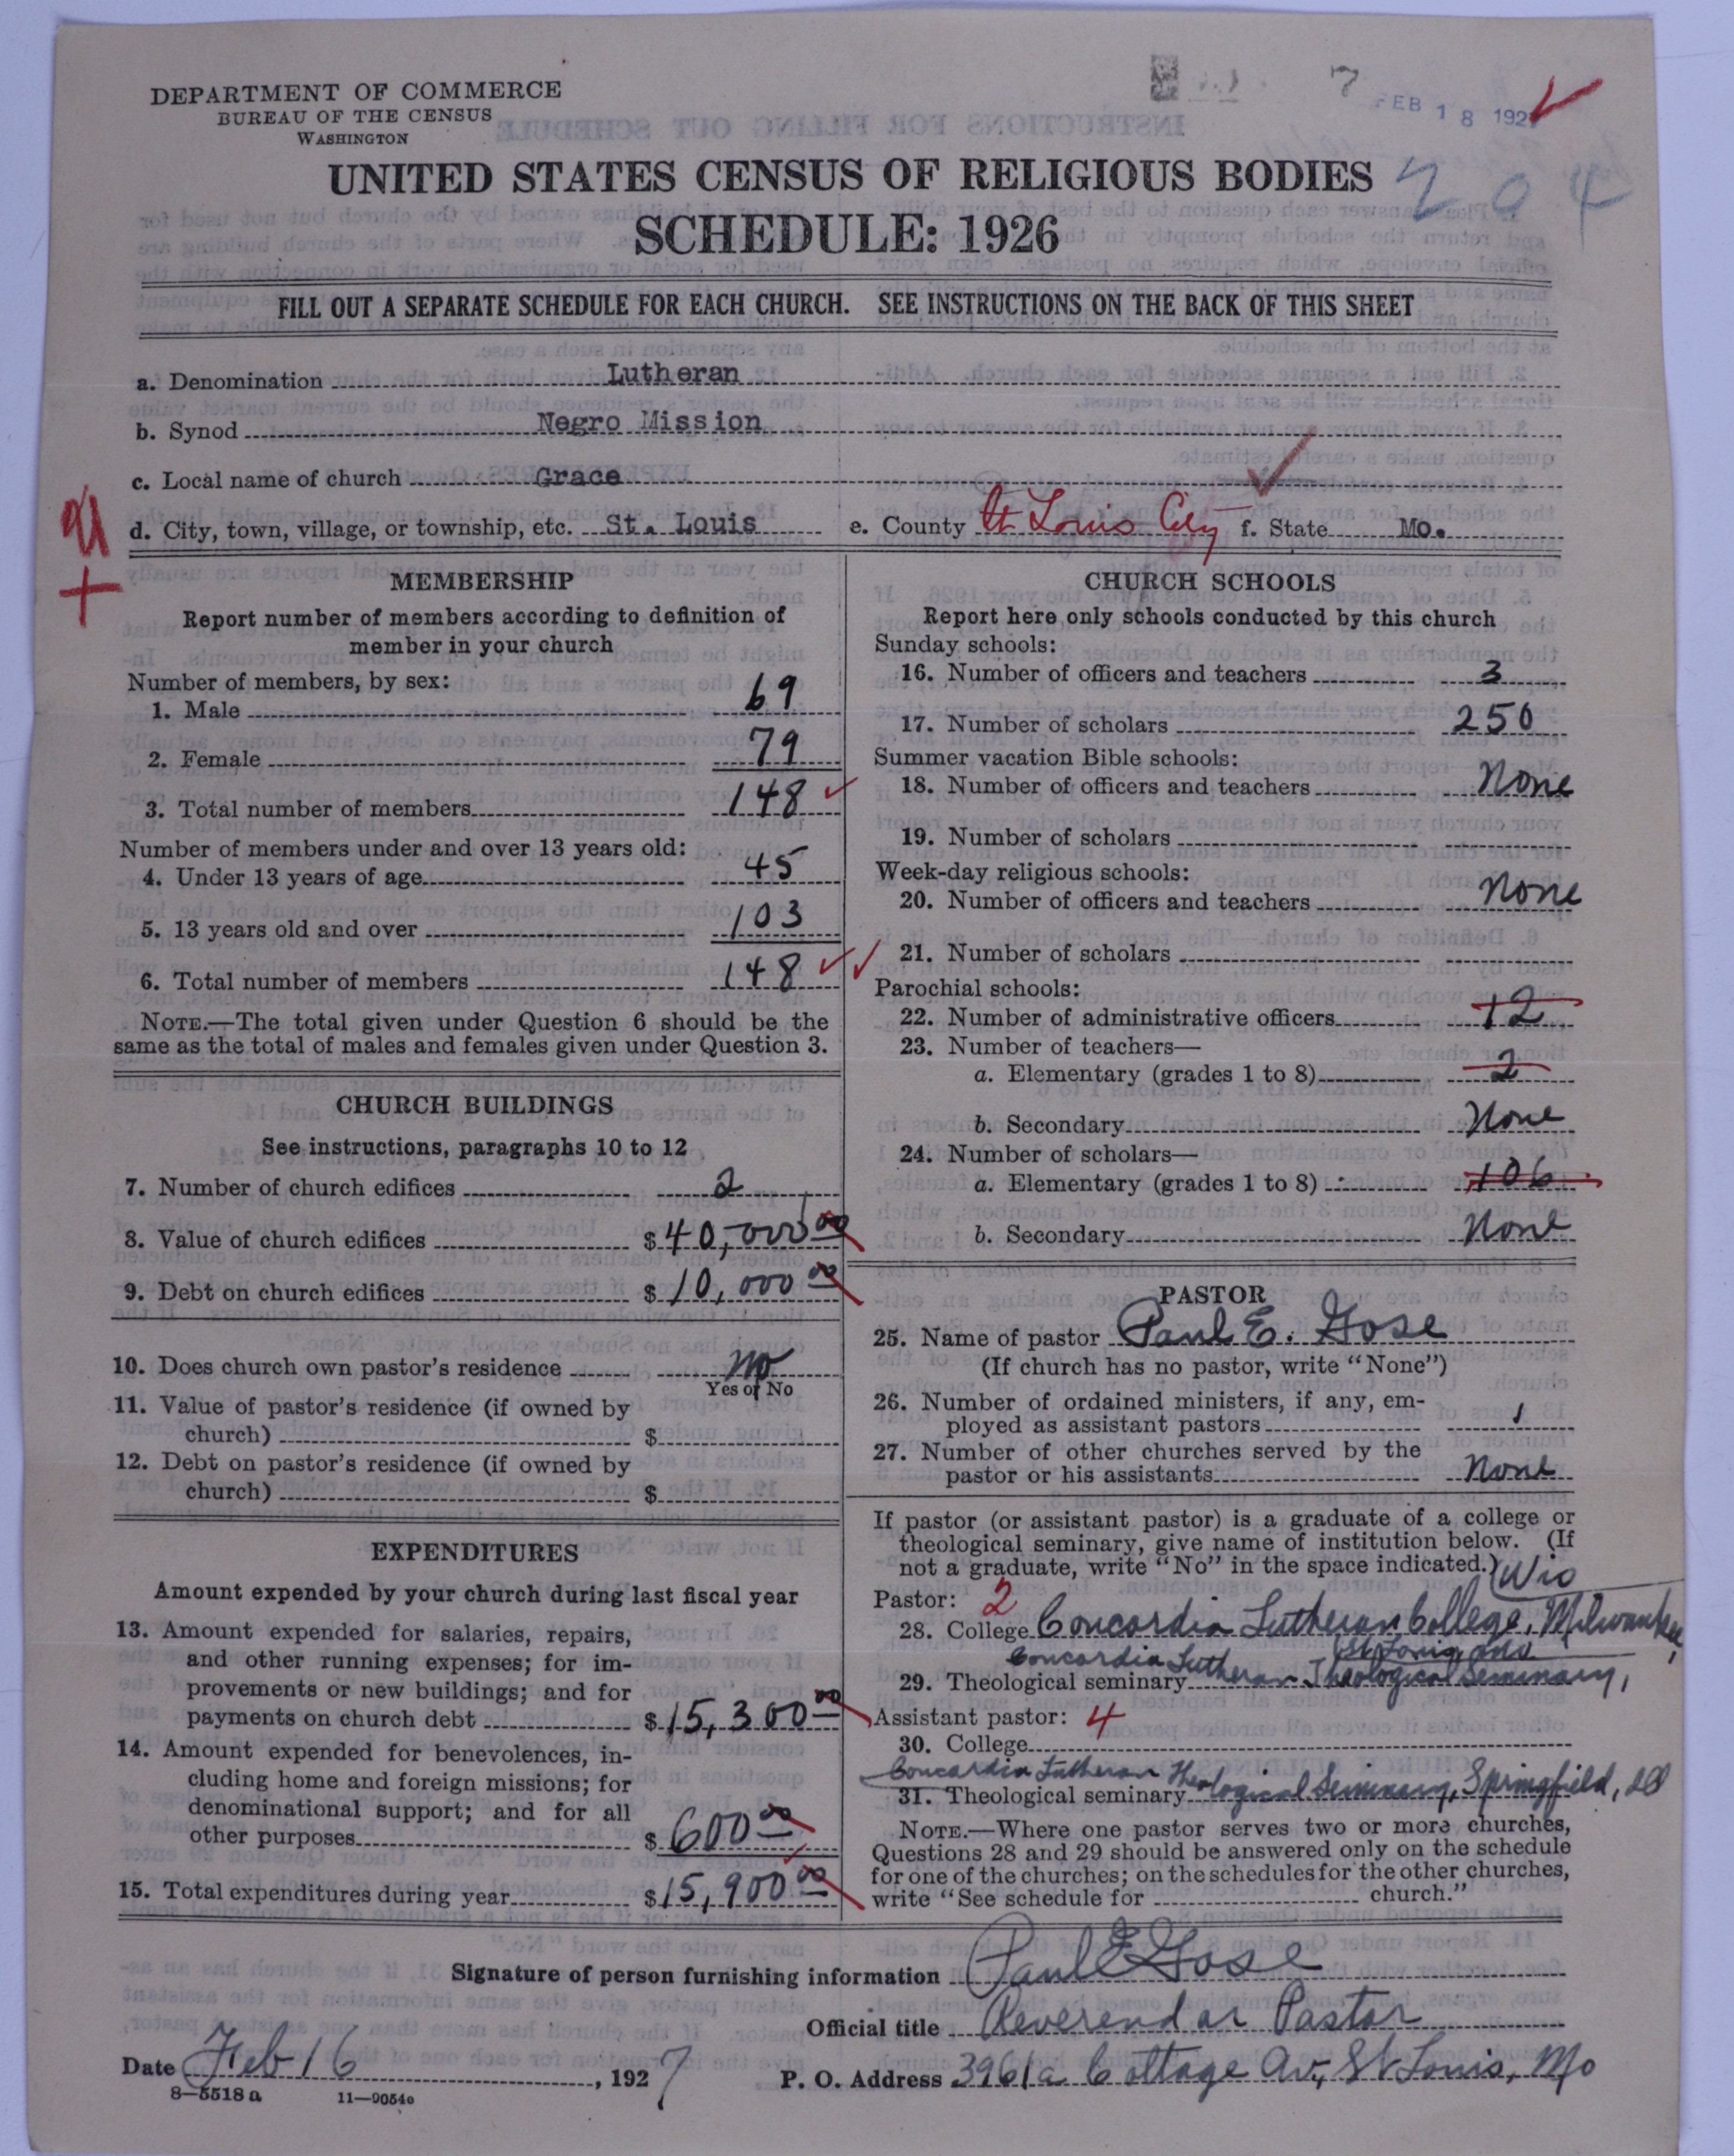 DEPARTMENT OF COMMERCE
BUREAU OF THE CENSUS
WASHINGTON
7
FEB 18 192
UNITED STATES CENSUS OF RELIGIOUS BODIES
204
SCHEDULE: 1926
FILL OUT A SEPARATE SCHEDULE FOR EACH CHURCH. SEE INSTRUCTIONS ON THE BACK OF THIS SHEET
a. Denomination Lutheran
b. Synod Negro Mission
c. Local name of church Grace
d. City, town, village, or township, etc. St. Louis e. County St Louis City f. State Mo.
MEMBERSHIP
Report number of members according to definition of
member in your church
Number of members, by sex:
1. Male 69
2. Female 79
3. Total number of members 148
Number of members under and over 13 years old:
4. Under 13 years of age 45
5. 13 years old and over 103
6. Total number of members 148
NOTE.—The total given under Question 6 should be the
same as the total of males and females given under Question 3.
CHURCH BUILDINGS
See instructions, paragraphs 10 to 12
7. Number of church edifices 2
8. Value of church edifices $40,000 00
9. Debt on church edifices $10,000 00
10. Does church own pastor's residence No
Yes or No
11. Value of pastor's residence (if owned by
church) $
12. Debt on pastor's residence (if owned by
church) $
EXPENDITURES
Amount expended by your church during last fiscal year
13. Amount expended for salaries, repairs,
and other running expenses; for im-
provements or new buildings; and for
payments on church debt $15,300 00
14. Amount expended for benevolences, in-
cluding home and foreign missions; for
denominational support; and for all
other purposes $600 00
15. Total expenditures during year $15,900 00
CHURCH SCHOOLS
Report here only schools conducted by this church
Sunday schools:
16. Number of officers and teachers 3
17. Number of scholars 250
Summer vacation Bible schools:
18. Number of officers and teachers None
19. Number of scholars
Week-day religious schools:
20. Number of officers and teachers None
21. Number of scholars
Parochial schools:
22. Number of administrative officers 12
23. Number of teachers—
a. Elementary (grades 1 to 8) 2
b. Secondary None
24. Number of scholars—
a. Elementary (grades 1 to 8) 106
b. Secondary None
PASTOR
25. Name of pastor Paul E. Gose
(If church has no pastor, write "None")
26. Number of ordained ministers, if any, em-
ployed as assistant pastors 1
27. Number of other churches served by the
pastor or his assistants None
If pastor (or assistant pastor) is a graduate of a college or
theological seminary, give name of institution below. (If
not a graduate, write "No" in the space indicated.)
Wis
Pastor: 2
28. College Concordia Lutheran College, Milwaukee,
St Louis, Mo
Concordia Lutheran
29. Theological seminary Theological Seminary,
Assistant pastor: 4
30. College
Concordia Lutheran Theological Seminary, Springfield, Ill
31. Theological seminary
NOTE.—Where one pastor serves two or more churches,
Questions 28 and 29 should be answered only on the schedule
for one of the churches; on the schedules for the other churches,
write "See schedule for church."
Signature of person furnishing information Paul E Gose
Official title Reverend or Pastor
Date Feb 16, 1927 P. O. Address 3961a Cottage Av, St Louis, Mo
8—5518a 11—9054c